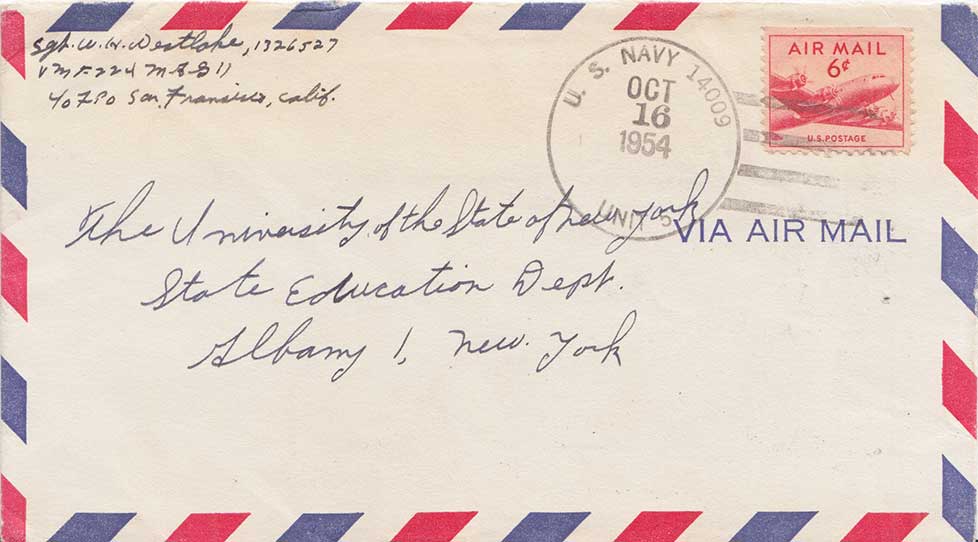 Sgt. W. W. Westlake, 1326527
VMF-224 MAG 11
c/o FPO San Fransisco, Calif.
U. S. NAVY 14009
OCT
16
1954
UNIT 5
AIR MAIL
6¢
U.S. POSTAGE
The University of the State of New York
VIA AIR MAIL
State Education Dept.
Albany 1, New York